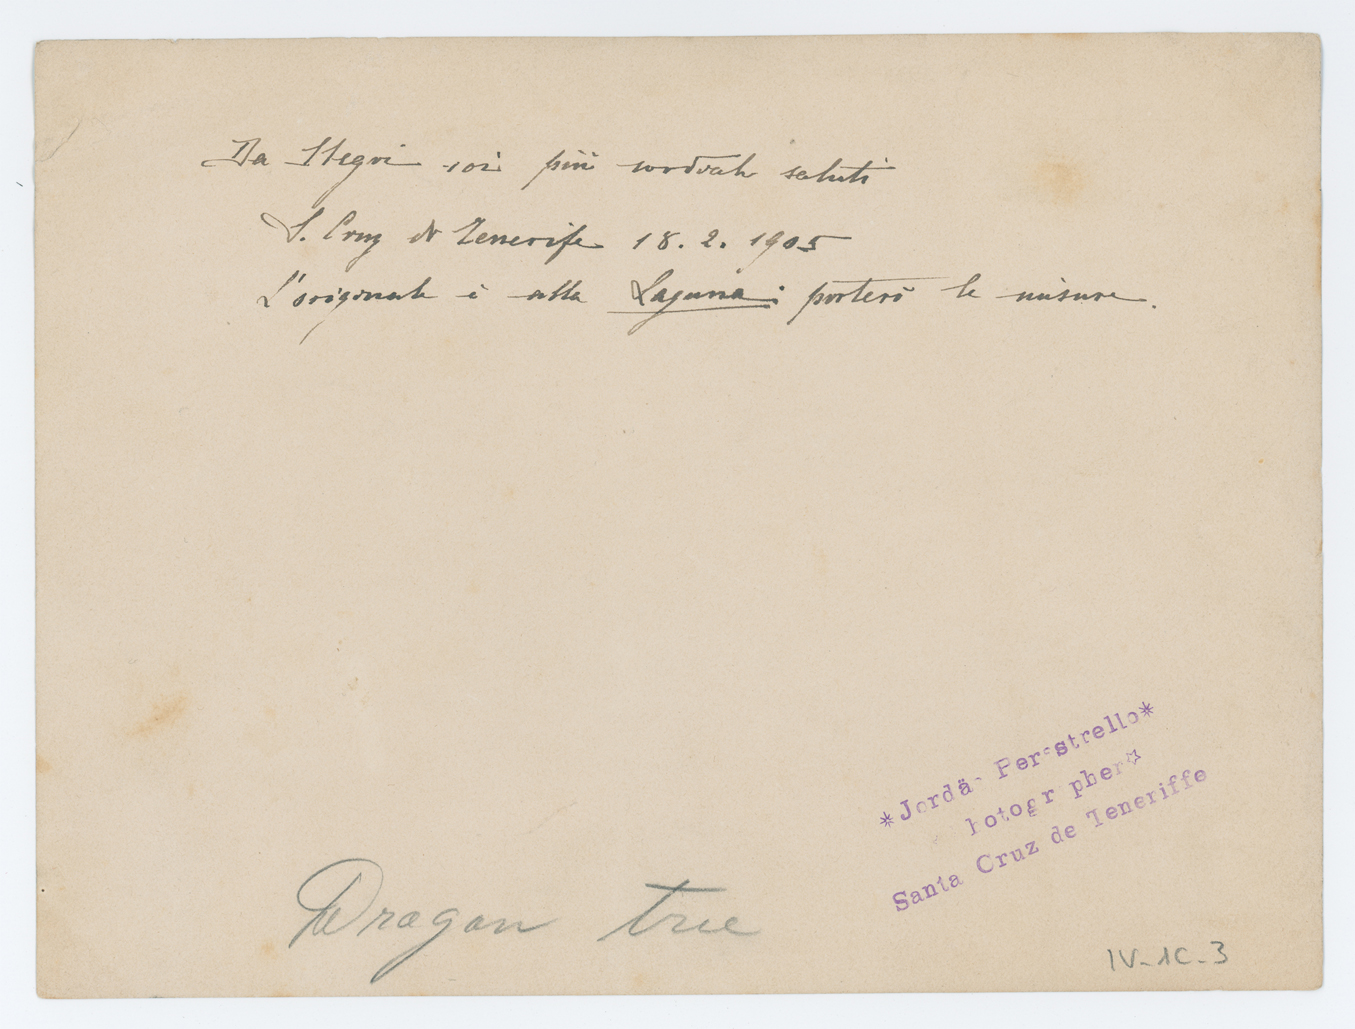 Da Negri coi più cordiali saluti
S. Cruz de Tenerife 18. 2. 1905
L'originale è alla Laguna: porterò le misure.
*Jordão Perestrello*
Photographer☆
Santa Cruz de Teneriffe
Dragon tree
IV-1C-3